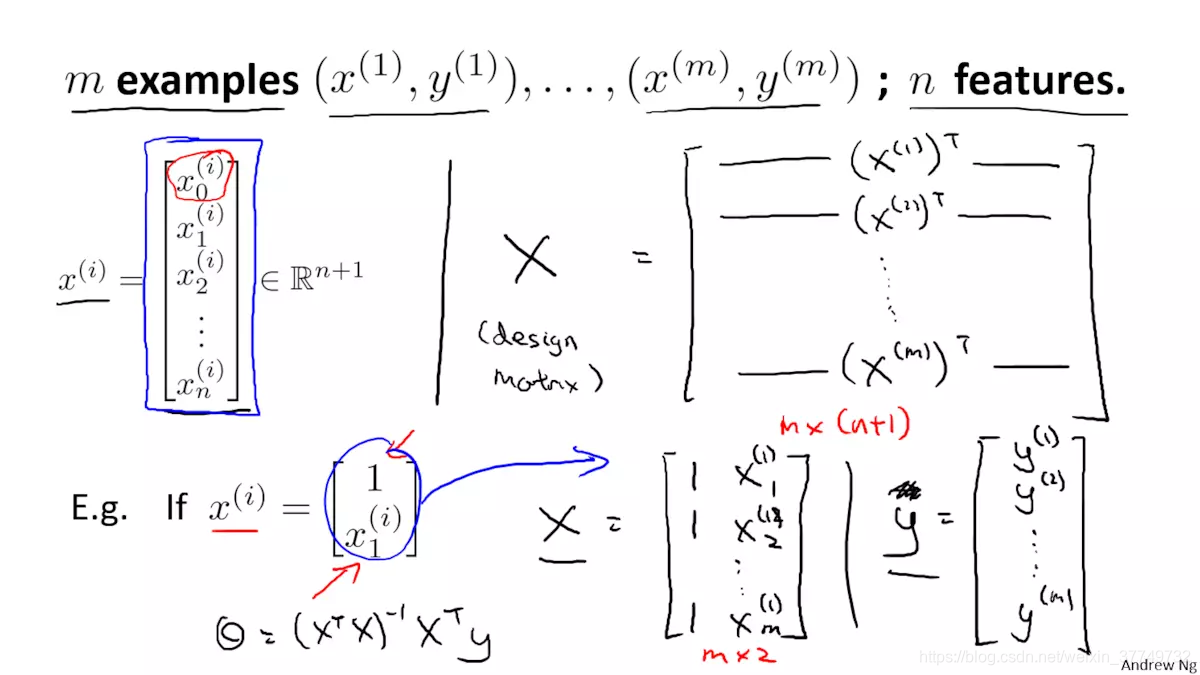 m examples (x^{(1)}, y^{(1)}), . . . , (x^{(m)}, y^{(m)}) ; n features.
x^{(i)} = [x_0^{(i)} x_1^{(i)} x_2^{(i)} ⋮ x_n^{(i)}] ∈ ℝ^{n+1}
X = [— (x^{(1)})^T —
— (x^{(2)})^T —
⋮
— (x^{(m)})^T —]
(design
matrix)
m x (n+1)
E.g. If x^{(i)} = [1 x_1^{(i)}]
X = [1 x_1^{(1)}
1 x_2
⋮
1 x_m^{(1)}]
m x 2
y = [y^{(1)}
y^{(2)}
⋮
y^{(m)}]
Θ = (X^T X)^{-1} X^T y
https://blog.csdn.net/weixin_37749732
Andrew Ng